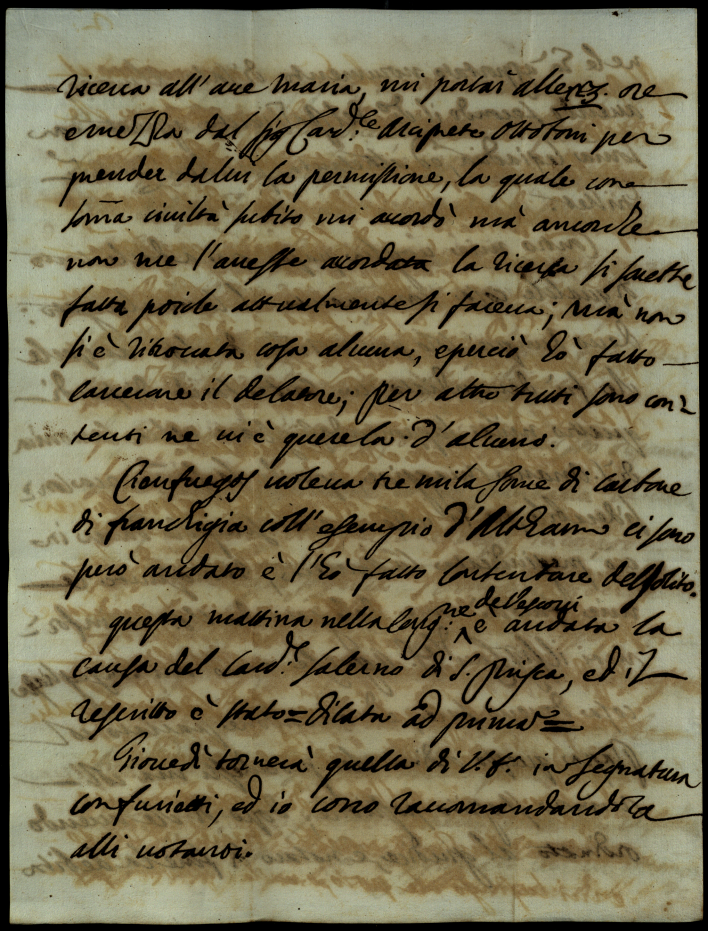 ricerca all'ave maria, mi portai alle 23. ore
e mezza dal Sig Card.le Arciprete Ottoboni per
prender da lui la permissione, la quale con
somma civiltà subito mi accordò mà ancorche
non me l'avesse accordata la ricerca si sarebbe
fatta poiche attualmente si faceva; mà non
si è ritrovata cosa alcuna, e perciò hò fatto
carcerare il delatore; per altro tutti sono con=
tenti ne vi è querela d'alcuno.
Cienfuegos voleva tre mila some di carbone
di franchigia coll'esempio d'Althann ci sono
però andato è l'hò fatto contentare del solito.
questa mattina nella Cong.ne de Vescovi è andata la
causa del Card.l Salerno di S. Prisca, ed il
rescritto è stato = Dilata ad primam =
Giovedì tornerà quella di V.S. in Segnatura
con furietti, ed io corro raccomandandola
alli votanti.